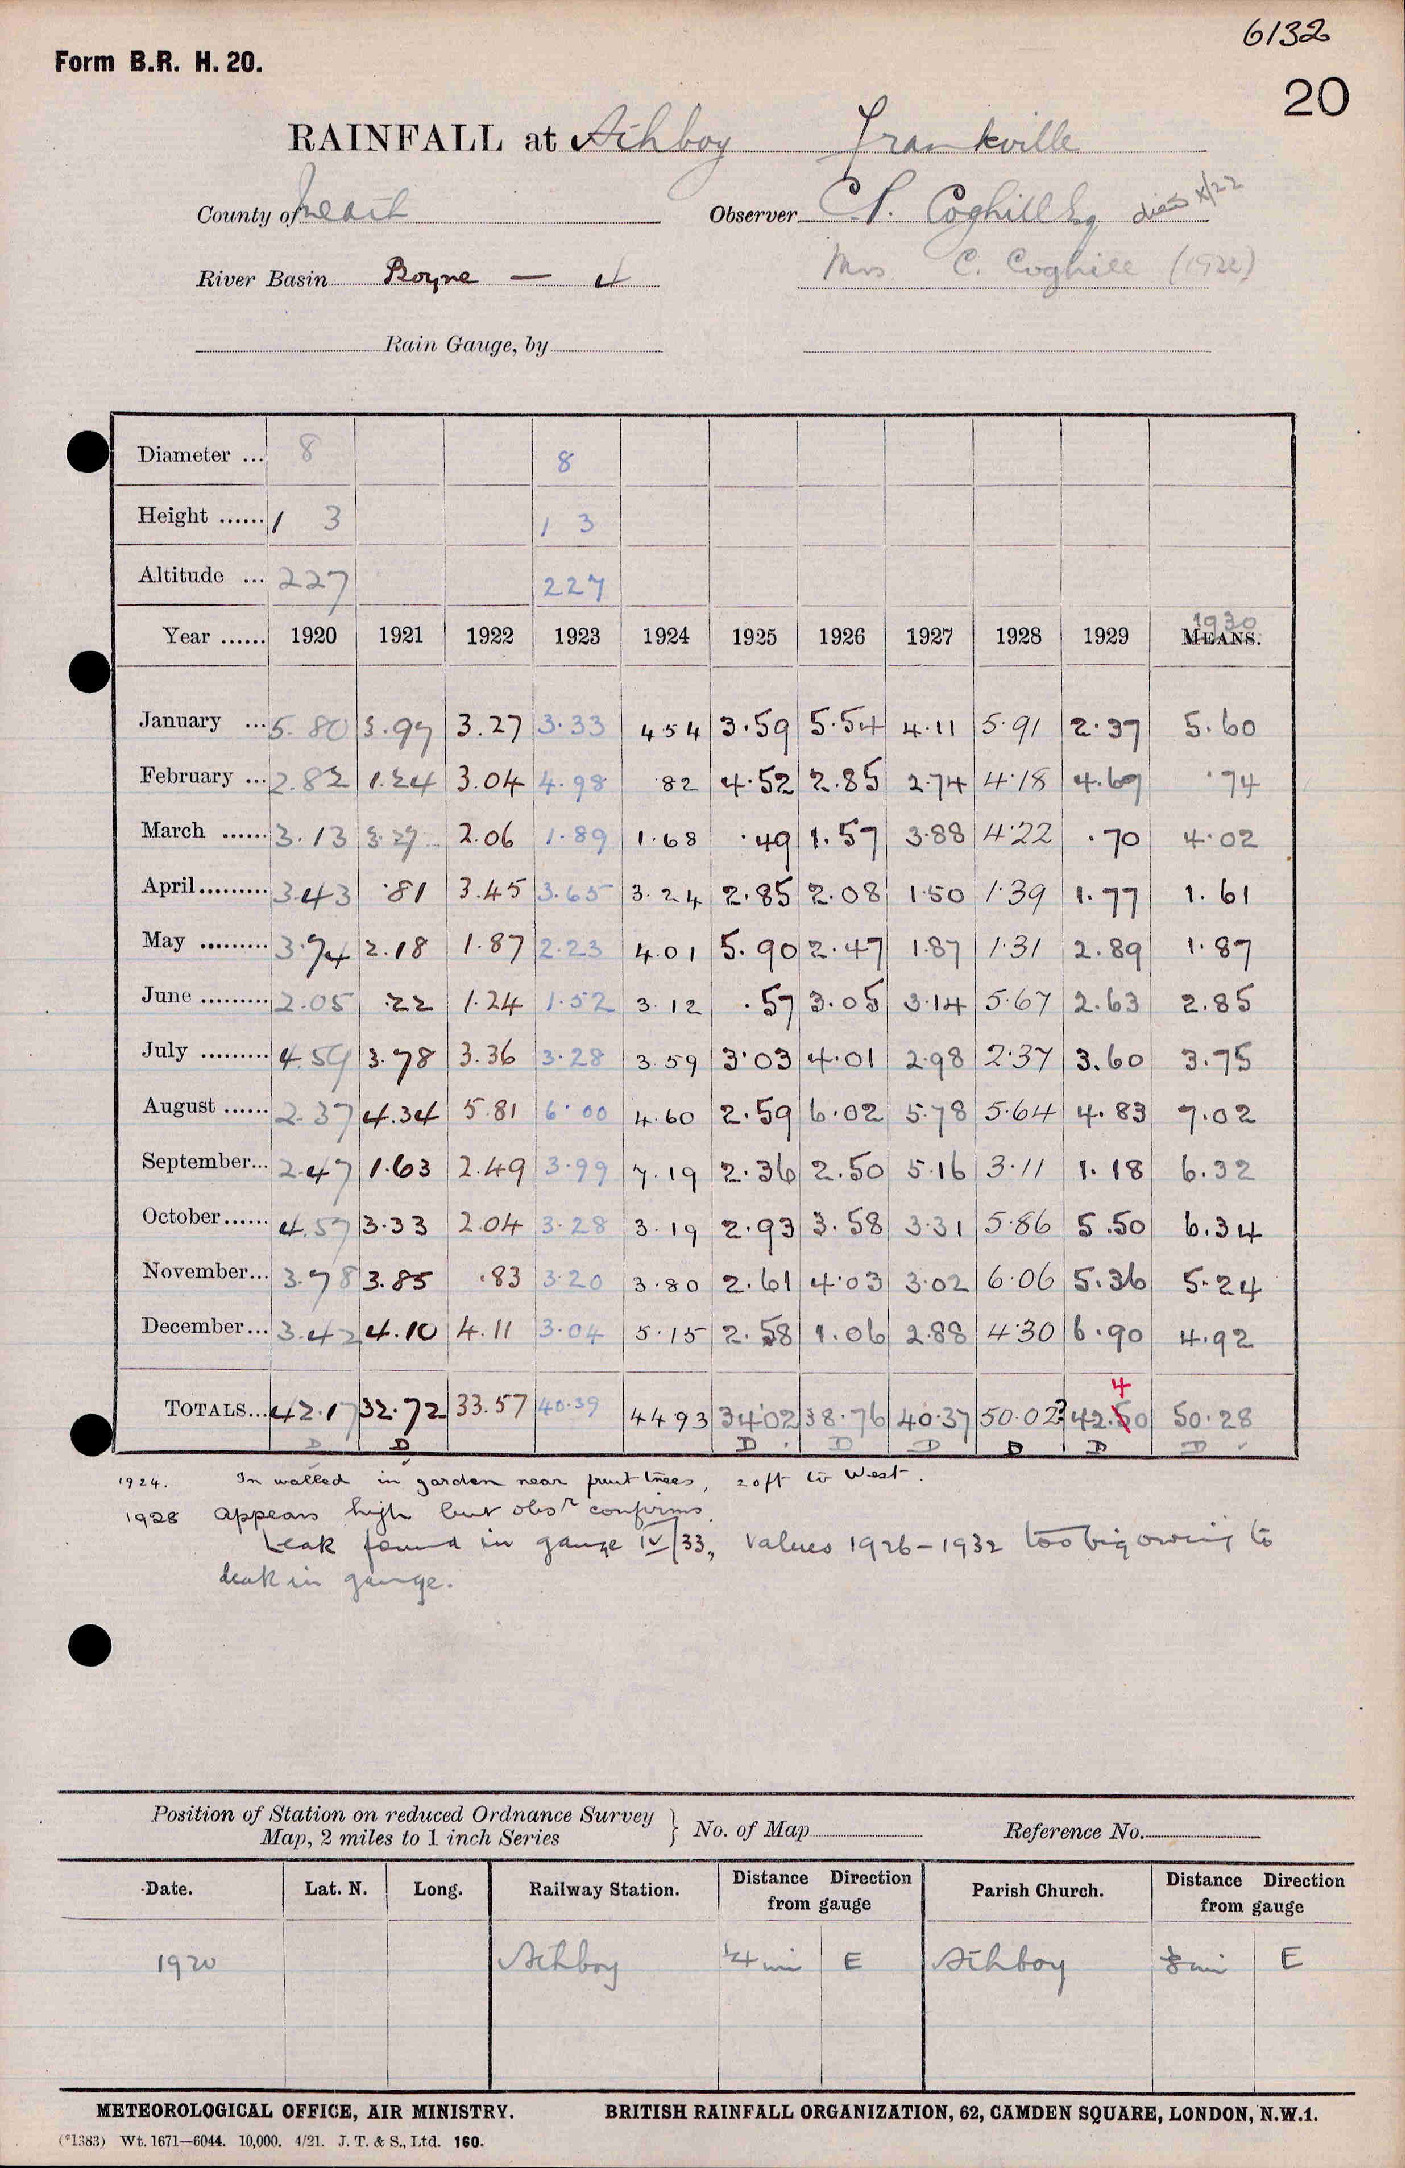 6132
Form B.R. H. 20.
20
RAINFALL at Athboy Frankville
County of Meath Observer C.P. Coghill Esq died X/22
River Basin Boyne — 4 Mrs C. Coghill (1922)
Rain Gauge, by
Diameter ... 8 8
Height ...... 1 3 1 3
Altitude ... 227 227
1930
Year ...... 1920 1921 1922 1923 1924 1925 1926 1927 1928 1929 MEANS.
January ... 5.80 3.97 3.27 3.33 4.54 3.59 5.54 4.11 5.91 2.37 5.60
February ... 2.82 1.24 3.04 4.98 .82 4.52 2.85 2.74 4.18 4.69 .74
March ...... 3.13 3.27 2.06 1.89 1.68 .49 1.57 3.88 4.22 .70 4.02
April ......... 3.43 .81 3.45 3.65 3.24 2.85 2.08 1.50 1.39 1.77 1.61
May ......... 3.74 2.18 1.87 2.23 4.01 5.90 2.47 1.87 1.31 2.89 1.87
June ......... 2.05 .22 1.24 1.52 3.12 .57 3.05 3.14 5.67 2.63 2.85
July ......... 4.59 3.78 3.36 3.28 3.59 3.03 4.01 2.98 2.37 3.60 3.75
August ...... 2.37 4.34 5.81 6.00 4.60 2.59 6.02 5.78 5.64 4.83 7.02
September... 2.47 1.63 2.49 3.99 7.19 2.36 2.50 5.16 3.11 1.18 6.32
October...... 4.57 3.33 2.04 3.28 3.19 2.93 3.58 3.31 5.86 5.50 6.34
November... 3.78 3.85 .83 3.20 3.80 2.61 4.03 3.02 6.06 5.36 5.24
December... 3.42 4.10 4.11 3.04 5.15 2.58 1.06 2.88 4.30 6.90 4.92
4
TOTALS... 42.17 32.72 33.57 40.39 44.93 34.02 38.76 40.37 50.02? 42.50 50.28
D D D D D D D D
1924. In walled in garden near fruit trees, 20ft to West.
1928 appears high but obsr confirms.
Leak found in gauge IV/33, values 1926-1932 too big owing to
leak in gauge.
Position of Station on reduced Ordnance Survey
Map, 2 miles to 1 inch Series } No. of Map Reference No.
Date. Lat. N. Long. Railway Station. Distance Direction from gauge Parish Church. Distance Direction from gauge
1920 Athboy 1/4 mi E Athboy 1/8 mi E
METEOROLOGICAL OFFICE, AIR MINISTRY. BRITISH RAINFALL ORGANIZATION, 62, CAMDEN SQUARE, LONDON, N.W.1.
(*1383) Wt. 1671—6044. 10,000. 4/21. J. T. & S., Ltd. 160.